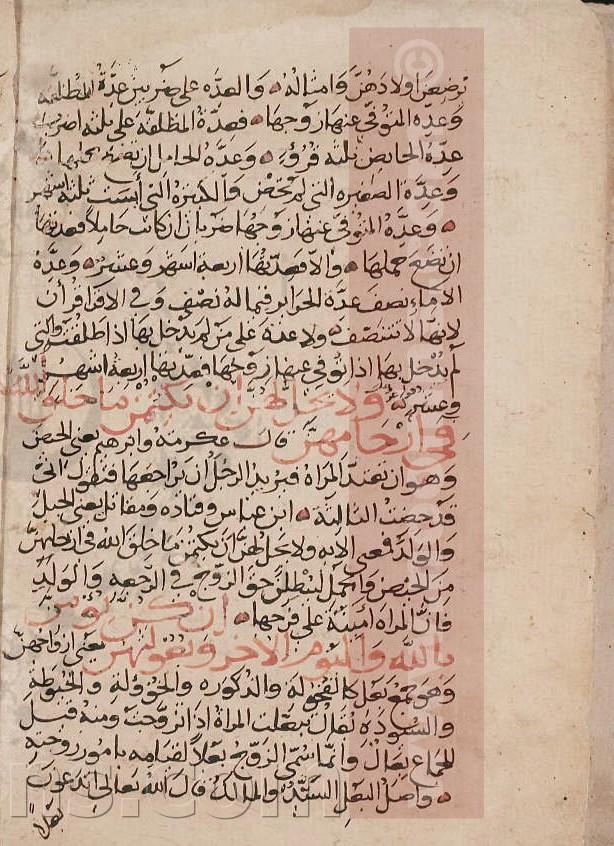 يرضعن اولادهن وامثاله والعده على ضربين عدة المطلقه
وعده المتوفى عنها زوجها فعدة المطلقه على ثلثه اضرب
عدة الحايض ثلثه قروء وعده الحامل ان تضع حملها
وعدة الصغيره التي لم تحض والكبيره التي ايست ثلثه اشهر
وعدة المتوفى عنها زوجها ضربان ان كانت حاملا فعدتها
ان تضع حملها والا فعدتها اربعة اشهر وعشر وعدة
الاماء نصف عدة الحراير فيما له نصف وفي الاقراء قرأن
لانها لا تتنصف ولا عدة على من لم يدخل بها اذا طلقت والتي
لم يدخل بها اذا توفي عنها زوجها فعدتها اربعة اشهر
وعشر ولا يحل لهن ان يكتمن ما خلق الله
في ارحامهن قال عكرمه وابرهيم يعني الحيض
وهو ان تعتد المراة فيريد الرجل ان يراجعها فتقول اني
قد حضت الثالثة ابن عباس وقتاده ومقاتل يعني الحبل
والولد فمعنى الايه ولا يحل لهن ان يكتمن ما خلق الله في ارحامهن
من الحيض والحمل ليبطلن حق الزوج في الرجعه والولد
فان المراة امينة على فرجها ان كن يؤمن
بالله واليوم الاخر وبعولتهن يعني ازواجهن
وهو جمع بعل كالفحولة والذكوره والخؤولة والخيوطة
يقال بعلت المراة اذا تزوجت ومنه قيل
للجماع بعال وانما سمي الزوج بعلا لقيامه بامور زوجته
واصل البعل السيد والمالك قال الله تعالى اتدعون
بعلا